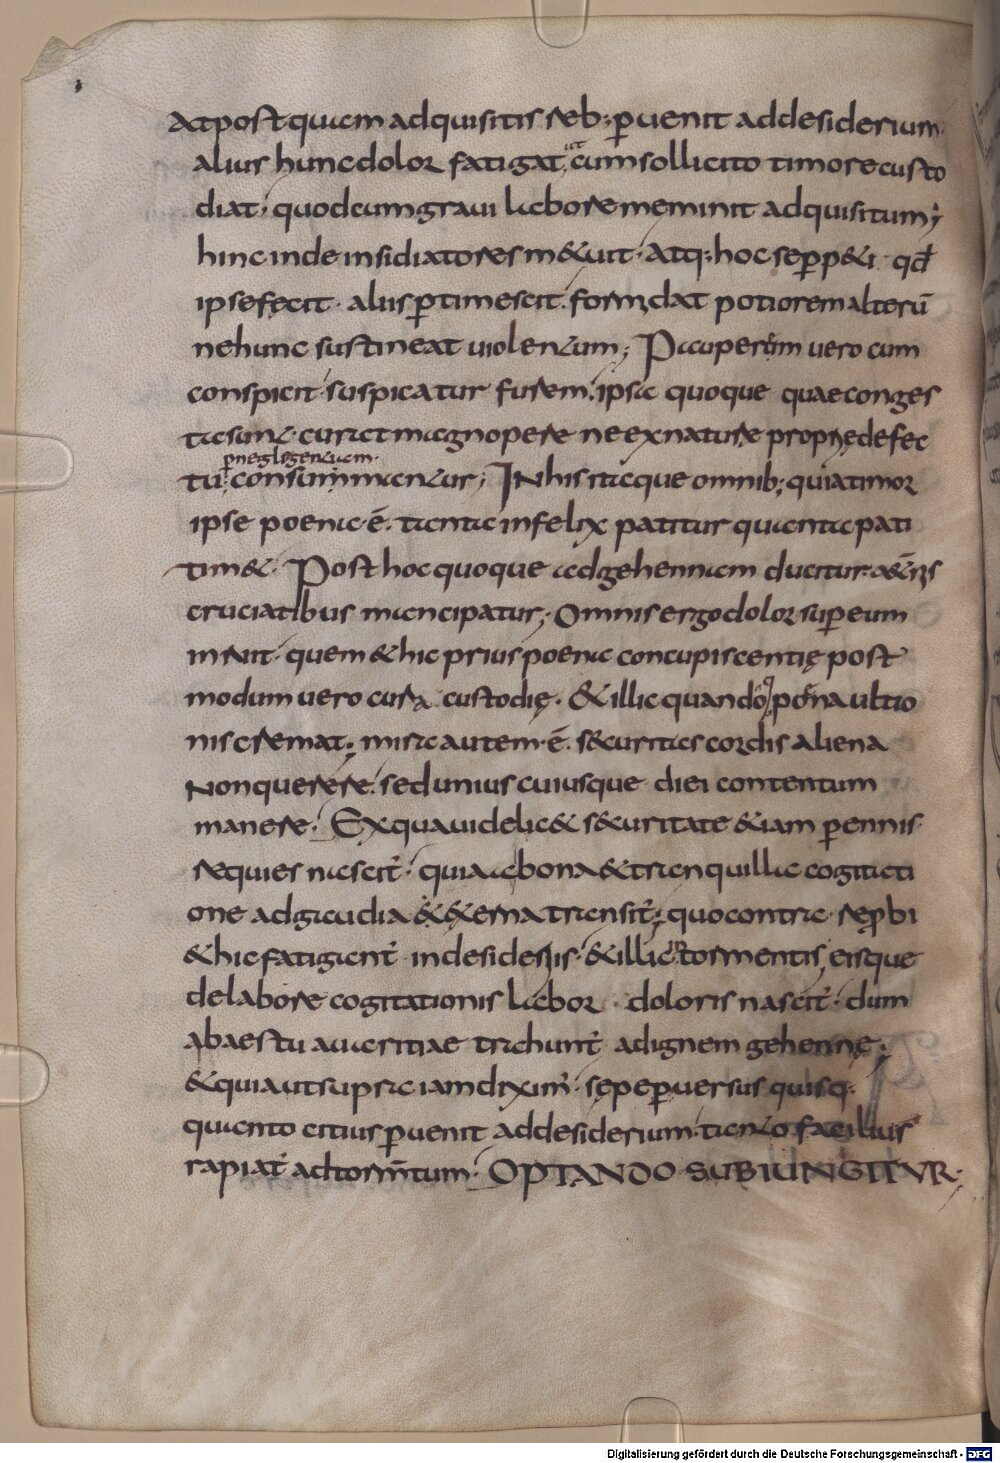 at postquam adquisitis reb; puenit addesiderium·
alius hunc dolor fatigat, ut cum sollicito timore custo
diat· quod cum gravi labore meminit adquisitum;
hinc inde insidiatores m&uit· Atq; hoc se pp&i qđ
ipse fecit· aliis ptimescit. formidat potiorem alterū
ne hunc sustineat violentum; Pauperem vero cum
conspicit· suspicatur furem. ipsa quoque quae conges
ta sunt· curat magnopere ne ex nature proprię defec
tu p neglegentiam· consummantur; In his itaque omnib; quia timor
ipse poena ē. tanta infelix patitur quanta pati
tim&. Post hoc quoque ad gehennam ducitur. a&ernis
cruciatibus mancipatur; Omnis ergo dolor sup eum
inruit· quem & hic prius poena concupiscentię post
modum vero cura custodię. & illic quandoq; poena ultio
nis cremat; mira autem ē. securitas cordis aliena
non querere. sed unius cuiusque diei contentum
manere. Ex qua videlic& securitate &iam pennis
requies nascit· quia a bona & tranquilla cogitati
one ad gaudia &erna transit; quo contra· repbi
& hic fatigant in desideriis· & illic in tormentis, eisque
de labore cogitationis labor doloris nascit· dum
ab aestu avaritiae trahunt ad ignem gehennę;
& quia ut supra iam diximus· sępe pversus quisq.
quanto citius pvenit ad desiderium. tanto facilius
rapiat ad tormtum· OPTANDO SUBIUNGITVR·
Digitalisierung gefördert durch die Deutsche Forschungsgemeinschaft - DFG